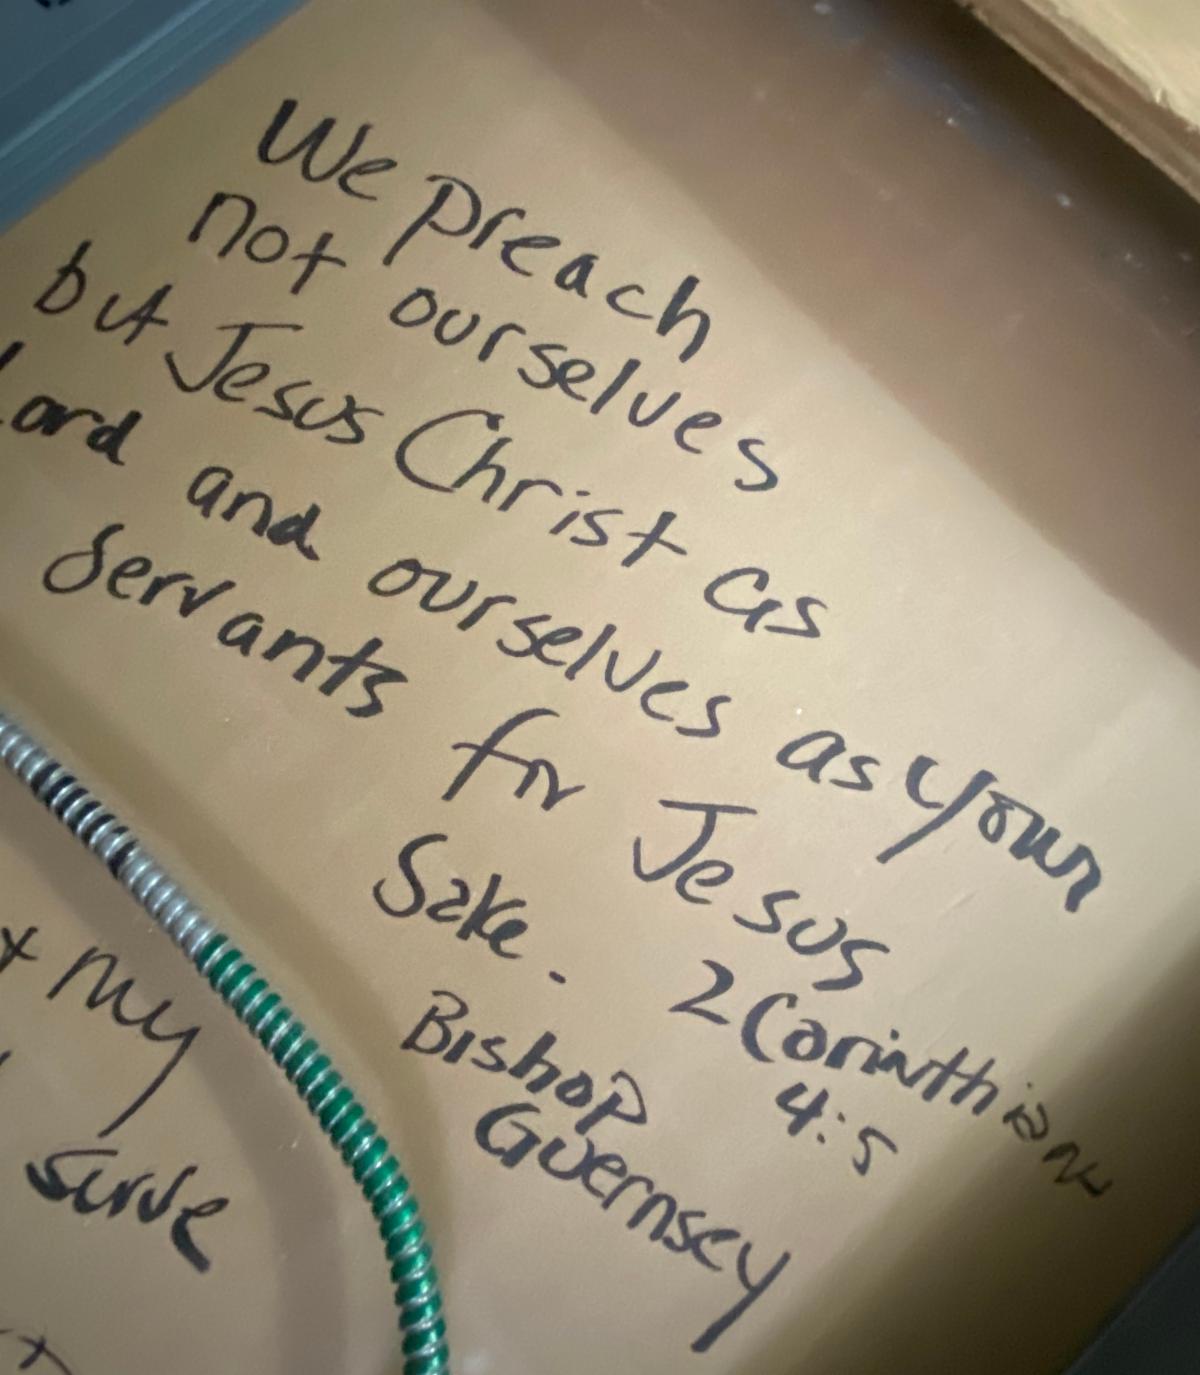 We preach
not ourselves
but Jesus Christ as
Lord and ourselves as your
servants for Jesus
Sake.
2 Corinthians
4:5
Bishop
Guernsey
my
serve